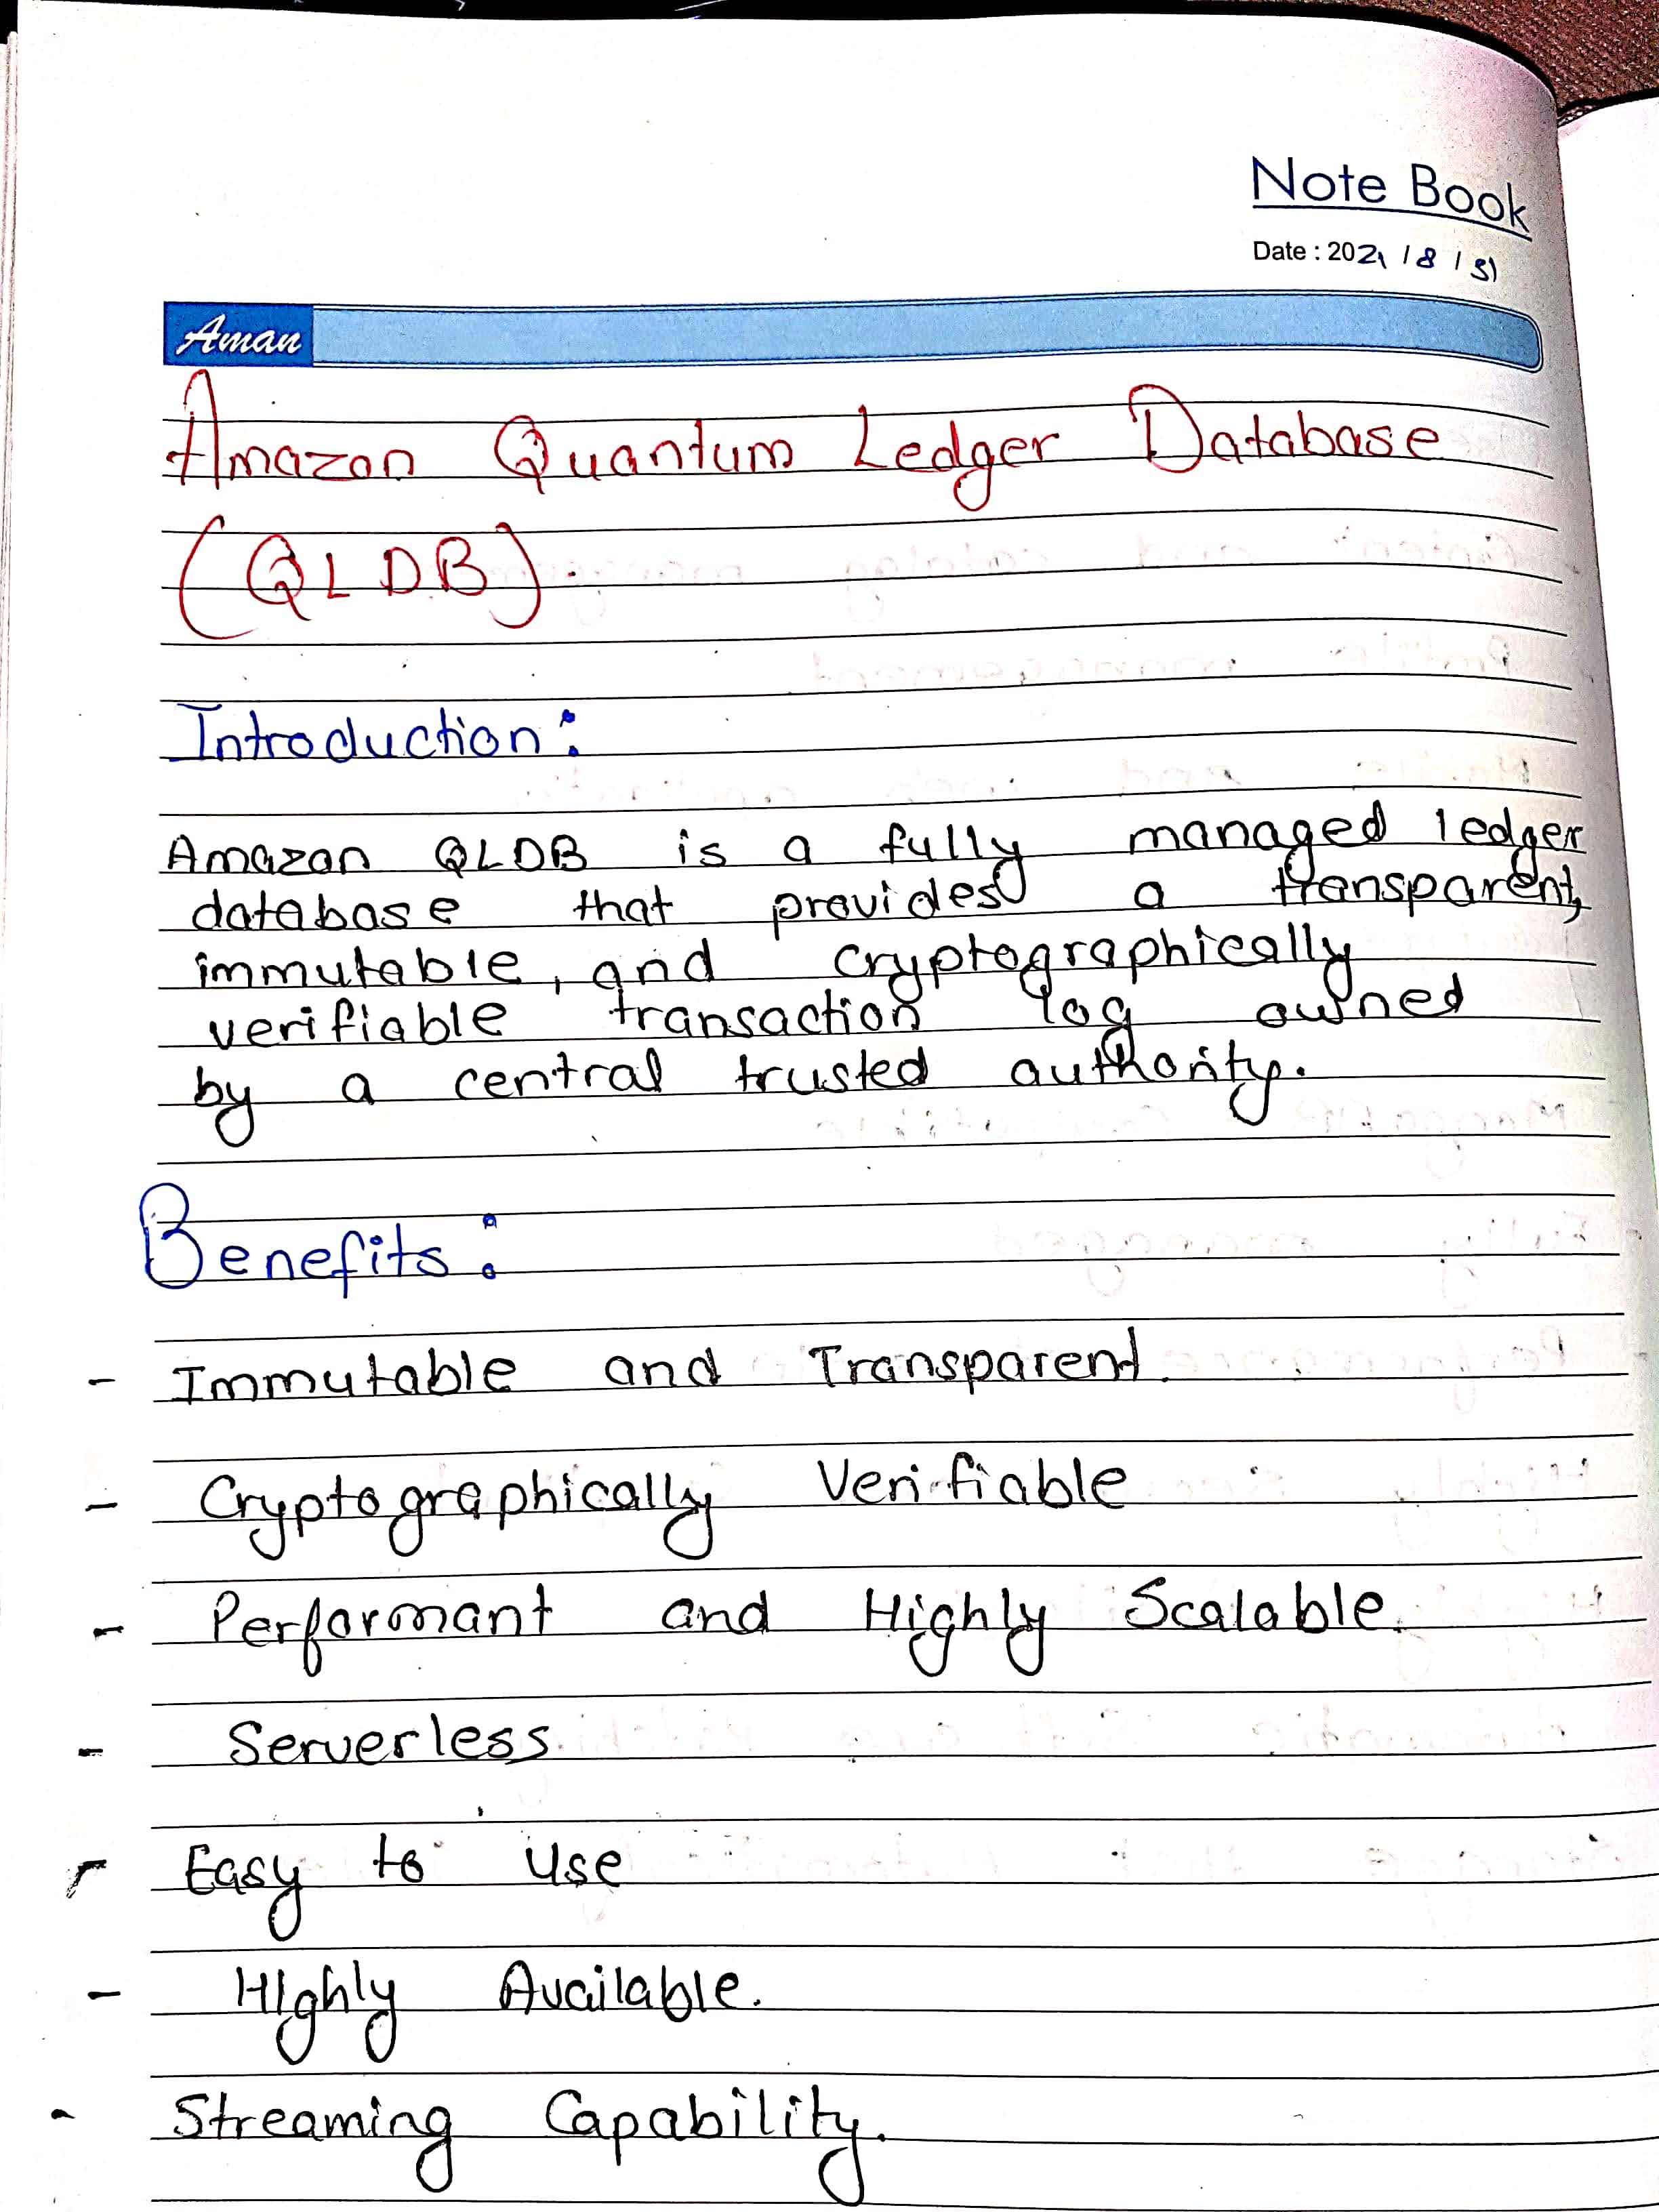 Note Book
Date : 2021 / 8 / 31
Aman
Amazon Quantum Ledger Database
(QLDB).
Introduction:
Amazon QLDB is a fully managed ledger
database that provides a transparent,
immutable, and cryptographically
verifiable transaction log owned
by a central trusted authority.
Benefits:
- Immutable and Transparent.
- Cryptographically Verifiable
- Performant and Highly Scalable.
- Serverless.
- Easy to Use
- HIghly Available.
- Streaming Capability.